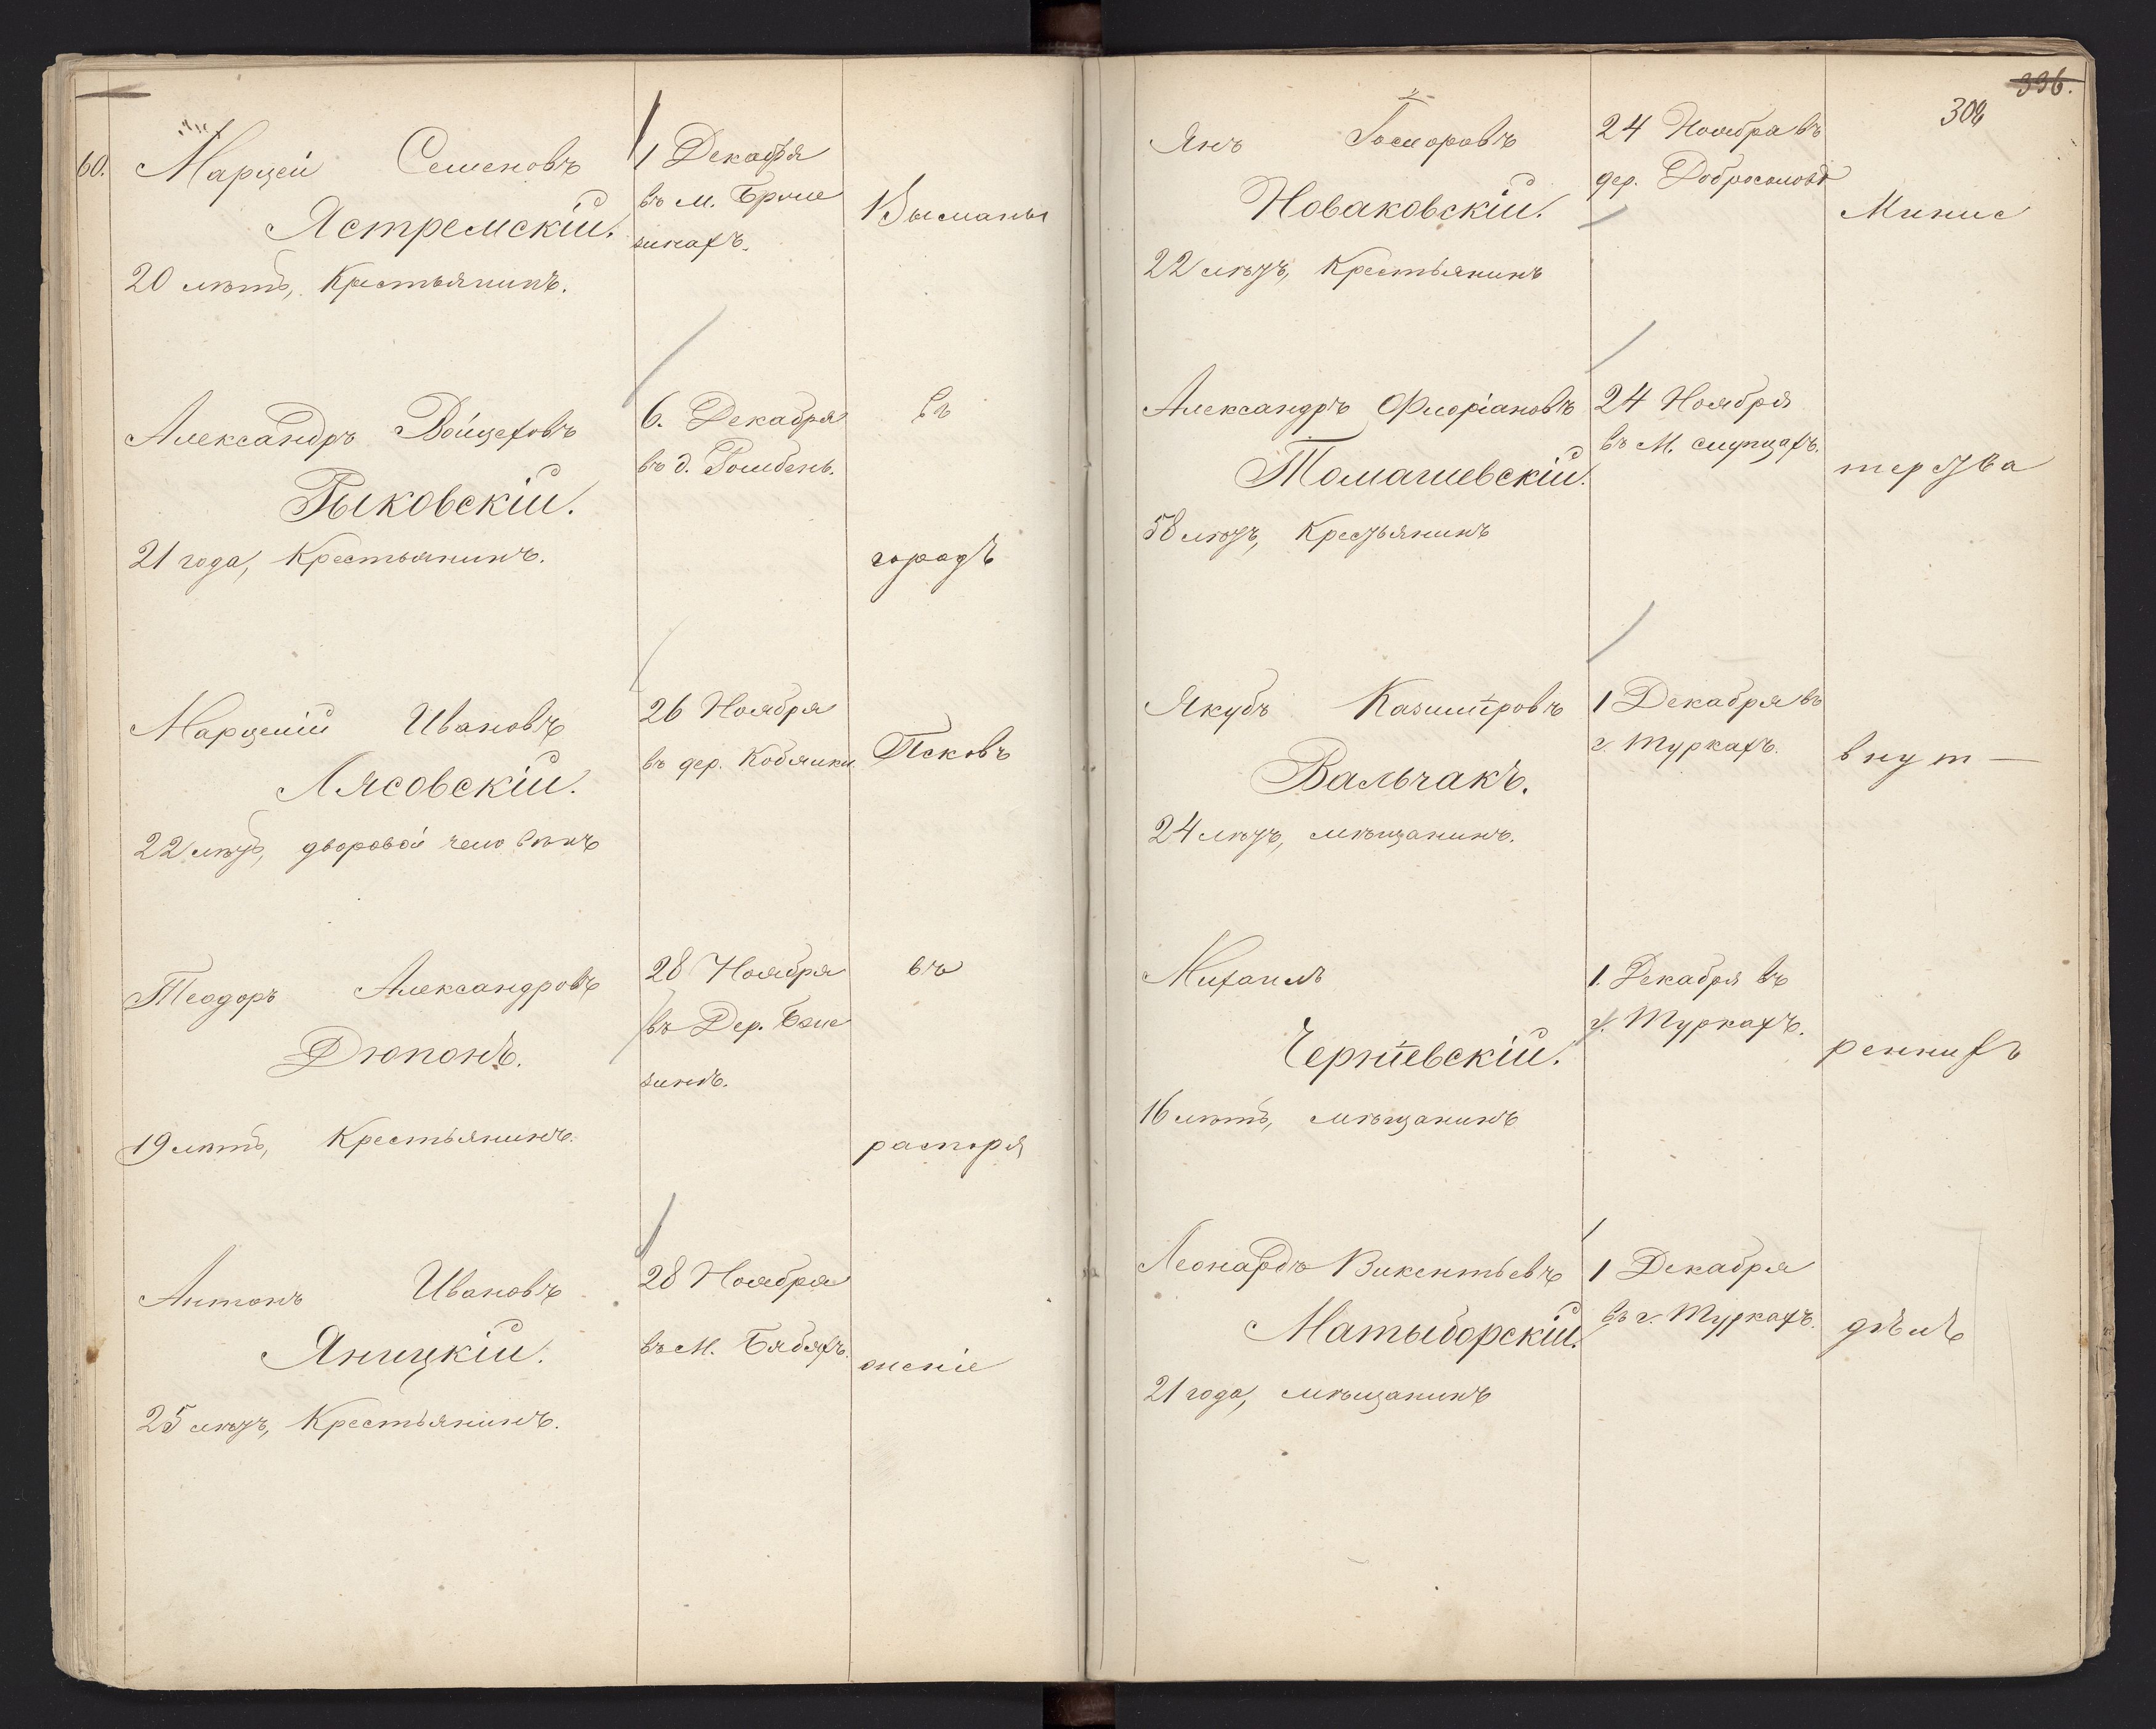 60. Марцей Семеновъ
Ястремскій.
20 лѣтъ, Крестьянинъ.
1 Декабря
въ М. Брыше
зинахъ.
Высланы
Александръ Войцеховъ
Рыковскій.
21 года, Крестьянинъ.
6. Декабря
въ д. Ромбень.
въ
городъ
Марцелій Ивановъ
Лясовскій.
22 лѣтъ, дворовой человѣкъ
26 Ноября
въ дер. Кобялки
Псковъ
Теодоръ Александровъ
Дюпонъ.
19 лѣтъ, Крестьянинъ.
28 Ноября
въ Дер. Бже
зинѣ.
въ
распоря
Антонъ Ивановъ
Яницкій.
25 лѣтъ, Крестьянинъ.
28 Ноября
въ М. Бябяхъ.
женіе
336.
Янъ
Новаковскій.
22 лѣтъ, Крестьянинъ
24 Ноября въ
дер. Добросоловѣ
Минис
Александръ Флоріановъ
Томашевскій.
58 лѣтъ, Крестьянинъ
24 Ноября
въ М. слупцахъ.
терства
Якубъ Казиміровъ
Вальчакъ.
24 лѣтъ, мѣщанинъ.
1 Декабря въ
г. Туркахъ.
внут—
Михаилъ
Черніевскій.
16 лѣтъ, мѣщанинъ
1. Декабря въ
г. Туркахъ.
реннихъ
Леонардъ Викентьевъ
Матыборскій.
21 года, мѣщанинъ
1 Декабря
въ г. Туркахъ.
дѣлъ